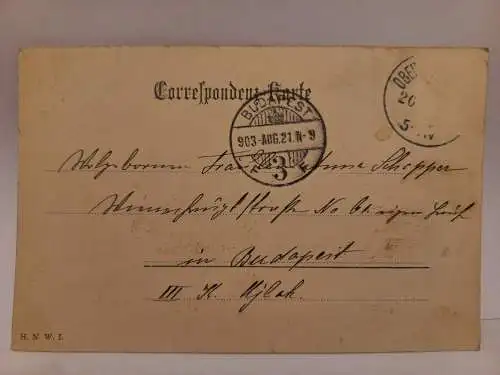 Correspondenz-Karte
BUDAPEST
903 · AUG. 21. N-9
3
OBER
20
5
Wolgeborenen Frau Anna Schopper
No 61 eigen
in Budapest
III K. Ujlak.
H. N. W. I.